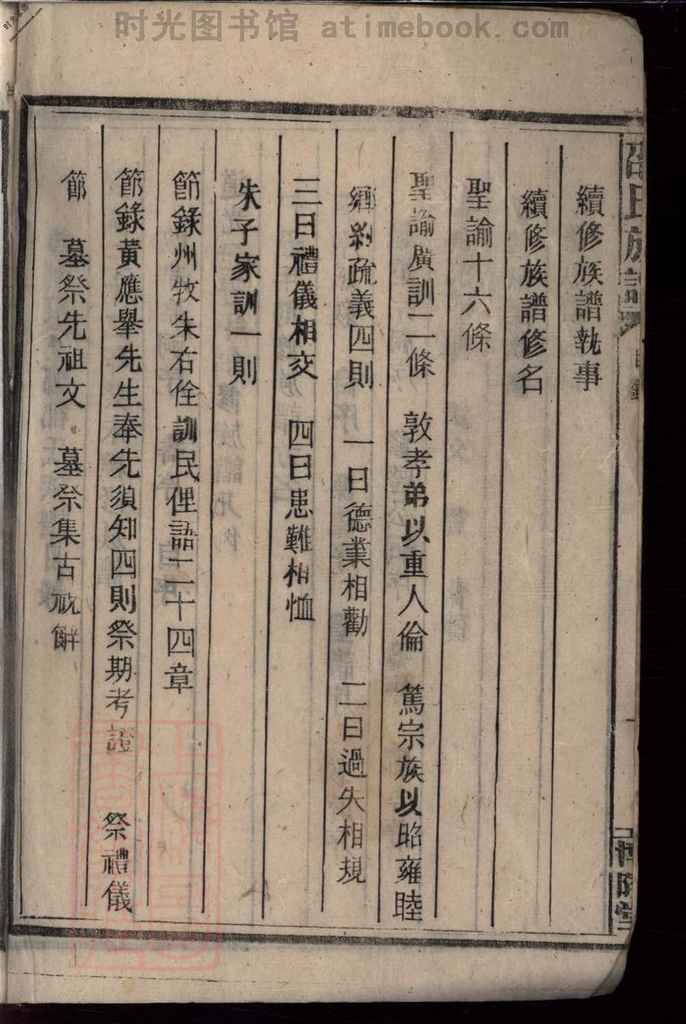 时光图书馆 atimebook.com
族譜
續修族譜執事
續修族譜修名
聖諭十六條
聖諭廣訓二條 敦孝弟以重人倫 篤宗族以昭雍睦
鄉約疏義四則 一曰德業相勸 二曰過失相規
三曰禮儀相交 四曰患難相恤
朱子家訓一則
節錄州牧朱右佺訓民俚語二十四章
節錄黃應舉先生奉先須知四則祭期考證 祭禮儀
節 墓祭先祖文 墓祭集古祝辭